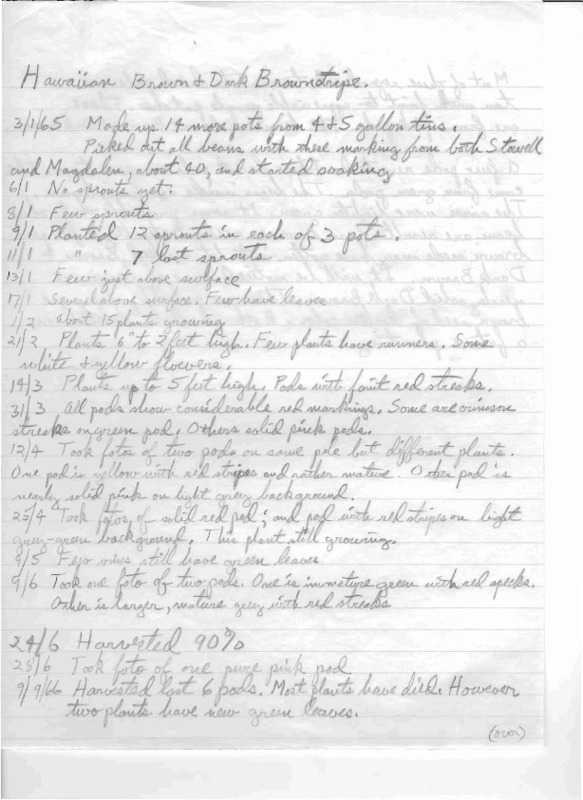 Hawaiian Brown & Dark Brownstripe.
3/1/65 Made up 14 more pots from 4 & 5 gallon tins.
Picked out all beans with these marking from both Stowell
and Magdalen, about 40, and started soaking
6/1 No sprouts yet.
8/1 Few sprouts
9/1 Planted 12 sprouts in each of 3 pots.
11/1 " 7 last sprouts
13/1 Few just above surface
17/1 Several above surface. Few have leaves
1/2 about 15 plants growing
21/2 Plants 6" to 2 feet high. Few plants have runners. Some
white & yellow flowers.
14/3 Plants up to 5 feet high. Pods with faint red streaks.
31/3 All pods show considerable red markings. Some are crimson
streaks on green pod. Others solid pink pods.
12/4 Took fotos of two pods on same pole but different plants.
One pod is yellow with red stripes and rather mature Other pod is
nearly solid pink on light grey background.
25/4 Took fotos of solid red pod; and pod with red stripes on light
grey-green background. This plant still growing.
9/5 Few vines still have green leaves
9/6 Took one foto of two pods. One is immature green with red specks.
Other is larger, mature grey with red streaks
24/6 Harvested 90%
25/6 Took foto of one pure pink pod
9/9/66 Harvested last 6 pods. Most plants have died. However
two plants have new green leaves.
(over)